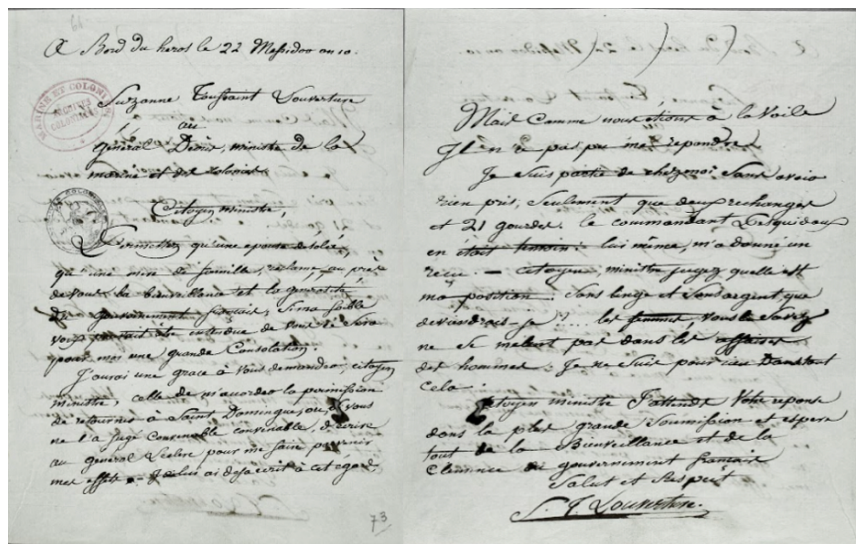 61
A Bord du heros le 22 Messidor an 10.
MARINE ET COLONIES
ARCHIVES
COLONIALES
Suzanne Toussaint Louverture
au
Général Décrès, ministre de la
marine et des colonies.
Citoyen ministre,
Permettez qu'une epouse desolée,
qu'une mère de famille, reclame au près
de vous la bienveillance et la generosité
du gouvernement français; Si ma faible
voix était entendue de vous ce Sera
pour moi une grande Consolation.
J'aurai une grace à vous demander, citoyen
ministre, celle de m'accorder la permission
de retourner à Saint Domingue, ou, Si vous
ne l'a Jugé convenable, d'écrire
au général Leclerc pour me faire parvenir
mes effets. Je lui ai deja ecrit à cet egard
73
Mais Comme nous étions à la Voile
Il n'a pas pu me repondre
Je Suis partie de chez moi Sans avoir
rien pris, Seulement que deux rechanges
et 21 gourdes. le commandant
en lui même, m'a donné un
reçu. - citoyen ministre jugez quelle est
ma position. Sans linge et Sans argent, que
deviendrai-je ?.... les femmes vous le Savez
ne Se mêlent pas dans les affaires
des hommes. Je ne Suis pour rien Dans tout
cela.
Citoyen ministre J'attends Votre reponse
dans la plus grande Soumission et espere
tout de la Bienveillance et de la
Clemence du gouvernement français
Salut et Respect
S. T. Louverture.